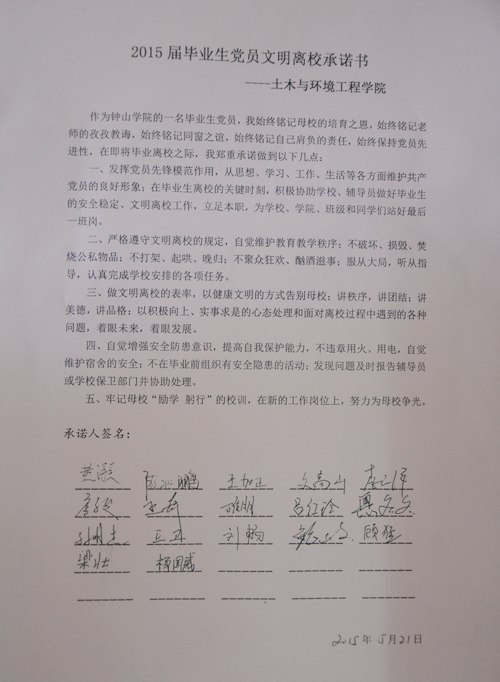 2015届毕业生党员文明离校承诺书
——土木与环境工程学院
作为钟山学院的一名毕业生党员，我始终铭记母校的培育之恩，始终铭记老
师的孜孜教诲，始终铭记同窗之谊，始终铭记自己肩负的责任，始终保持党员先
进性，在即将毕业离校之际，我郑重承诺做到以下几点：
一、发挥党员先锋模范作用，从思想、学习、工作、生活等各方面维护共产
党员的良好形象；在毕业生离校的关键时刻，积极协助学校、辅导员做好毕业生
的安全稳定、文明离校工作，立足本职，为学校、学院、班级和同学们站好最后
一班岗。
二、严格遵守文明离校的规定，自觉维护教育教学秩序；不破坏、损毁、焚
烧公私物品；不打架、起哄、晚归；不聚众狂欢、酗酒滋事；服从大局，听从指
导，认真完成学校安排的各项任务。
三、做文明离校的表率，以健康文明的方式告别母校；讲秩序，讲团结；讲
美德，讲品格；以积极向上、实事求是的心态处理和面对离校过程中遇到的各种
问题，着眼未来，着眼发展。
四、自觉增强安全防患意识，提高自我保护能力，不违章用火、用电，自觉
维护宿舍的安全；不在毕业前组织有安全隐患的活动；发现问题及时报告辅导员
或学校保卫部门并协助处理。
五、牢记母校“励学 躬行”的校训，在新的工作岗位上，努力为母校争光。
承诺人签名：
王加正 文高山
吕红玲
刘杨 顾健
梁壮 杨国威
2015年 5月21日